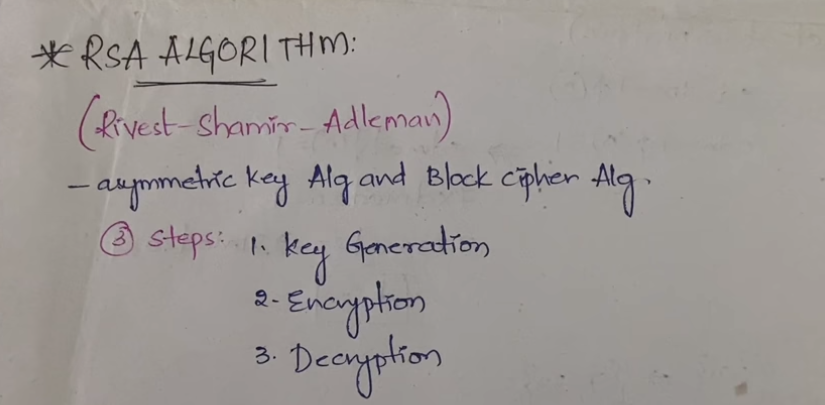 * RSA ALGORITHM:
(Rivest-Shamir-Adleman)
- asymmetric key Alg and Block cipher Alg.
③ steps: 1. Key Generation
2- Encryption
3. Decryption